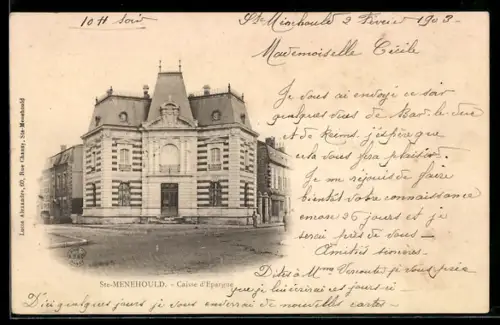 10 H Soir
Ste Menehould 2 Fevrier 1903.
Mademoiselle Cécile
Je vous ai envoyé ce soir
quelques vues de Bar-le-duc
et de Reims. j'espère que
cela vous fera plaisir.
Je me réjouis de faire
bientôt votre connaissance
encore 26 jours et je
serai près de vous —
Amitiés sincères.
Dites à Mme je vous prie
que je lui écrirai ces jours-ci
D'ici quelques jours je vous enverrai de nouvelles cartes —
Ste-MENEHOULD. - Caisse d'Epargne
Lucas Alexandre, 60, Rue Chanzy, Ste-Menehould